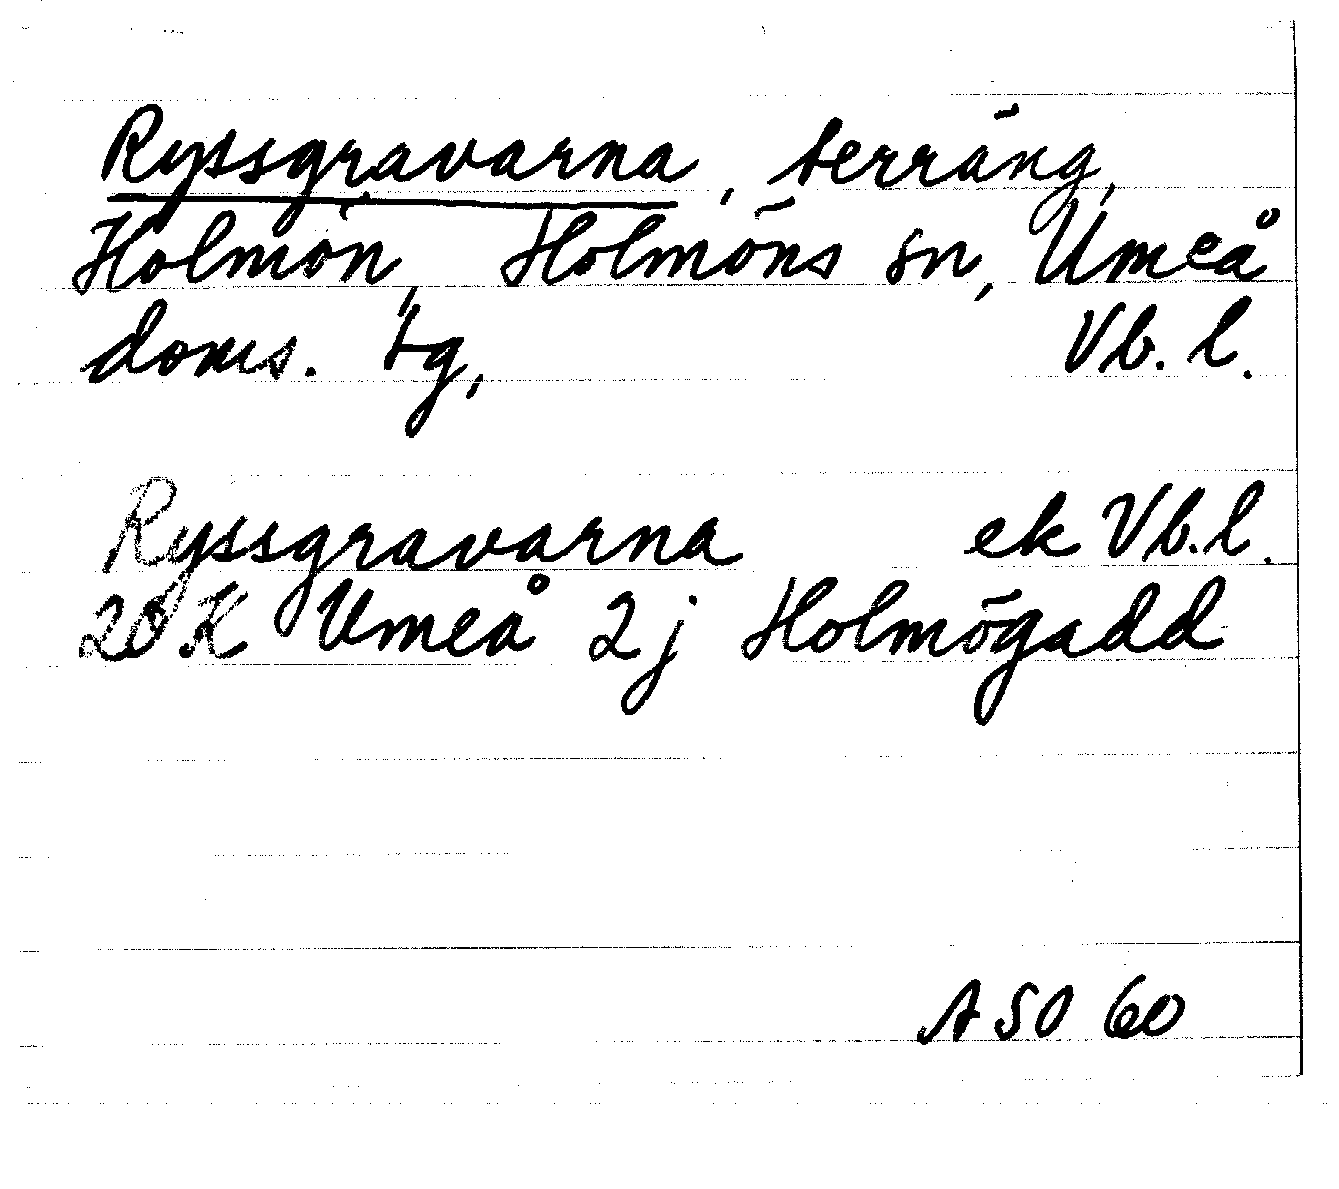 Ryssgravarna, terräng,
Holmön, Holmöns sn, Umeå
doms. tg, Vb. l.
Ryssgravarna ek Vb. l.
20 K Umeå 2j Holmögadd
ASO 60